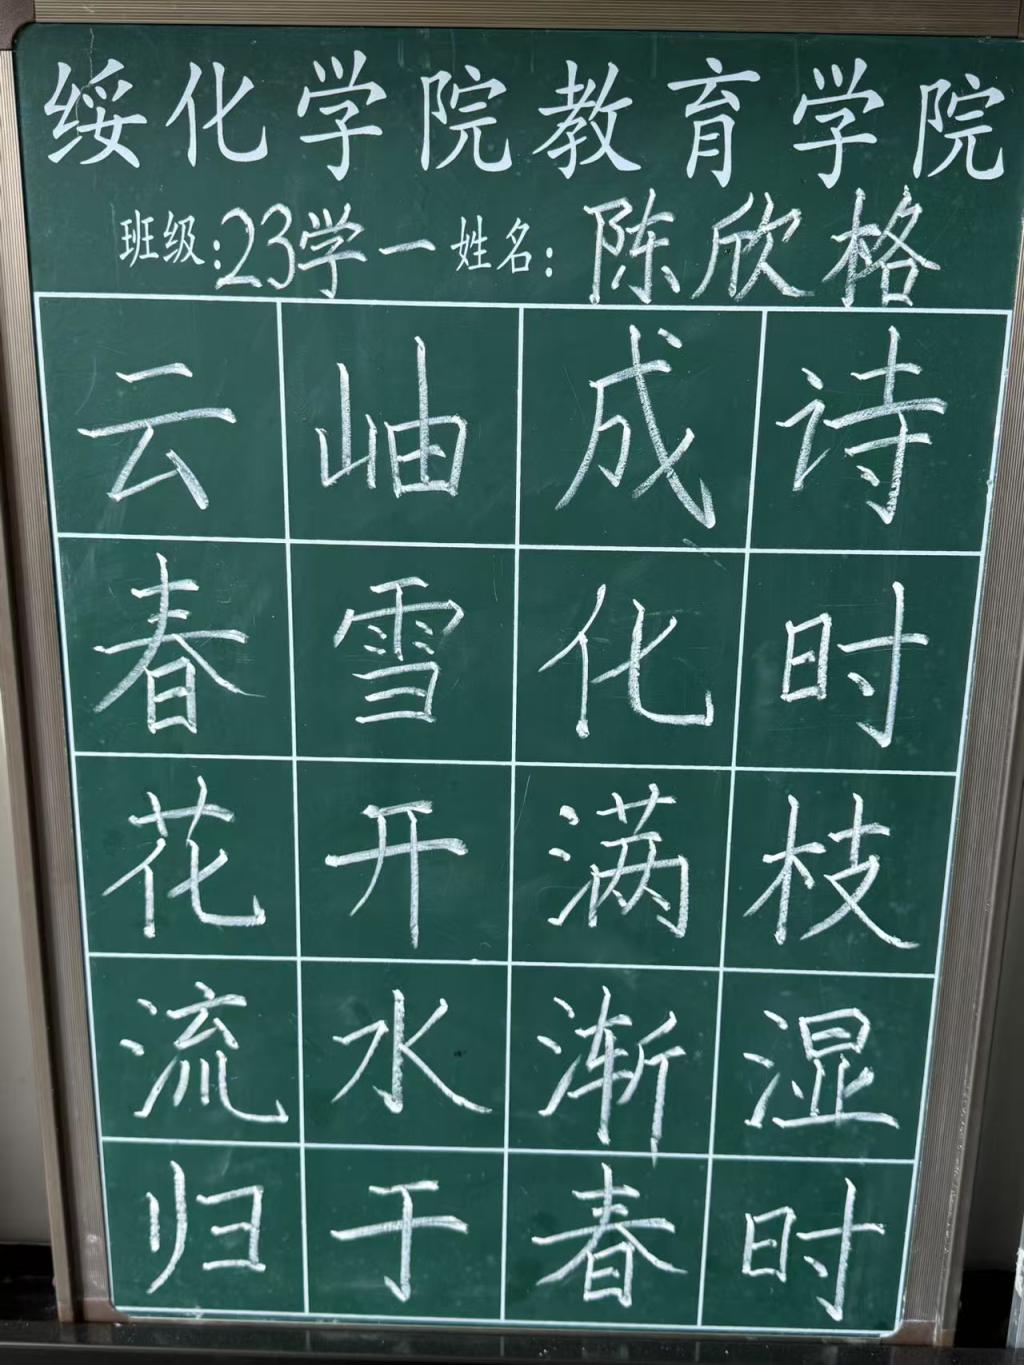 绥化学院教育学院
班级:23学一 姓名:陈欣格
云岫成诗
春雪化时
花开满枝
流水渐湿
归于春时